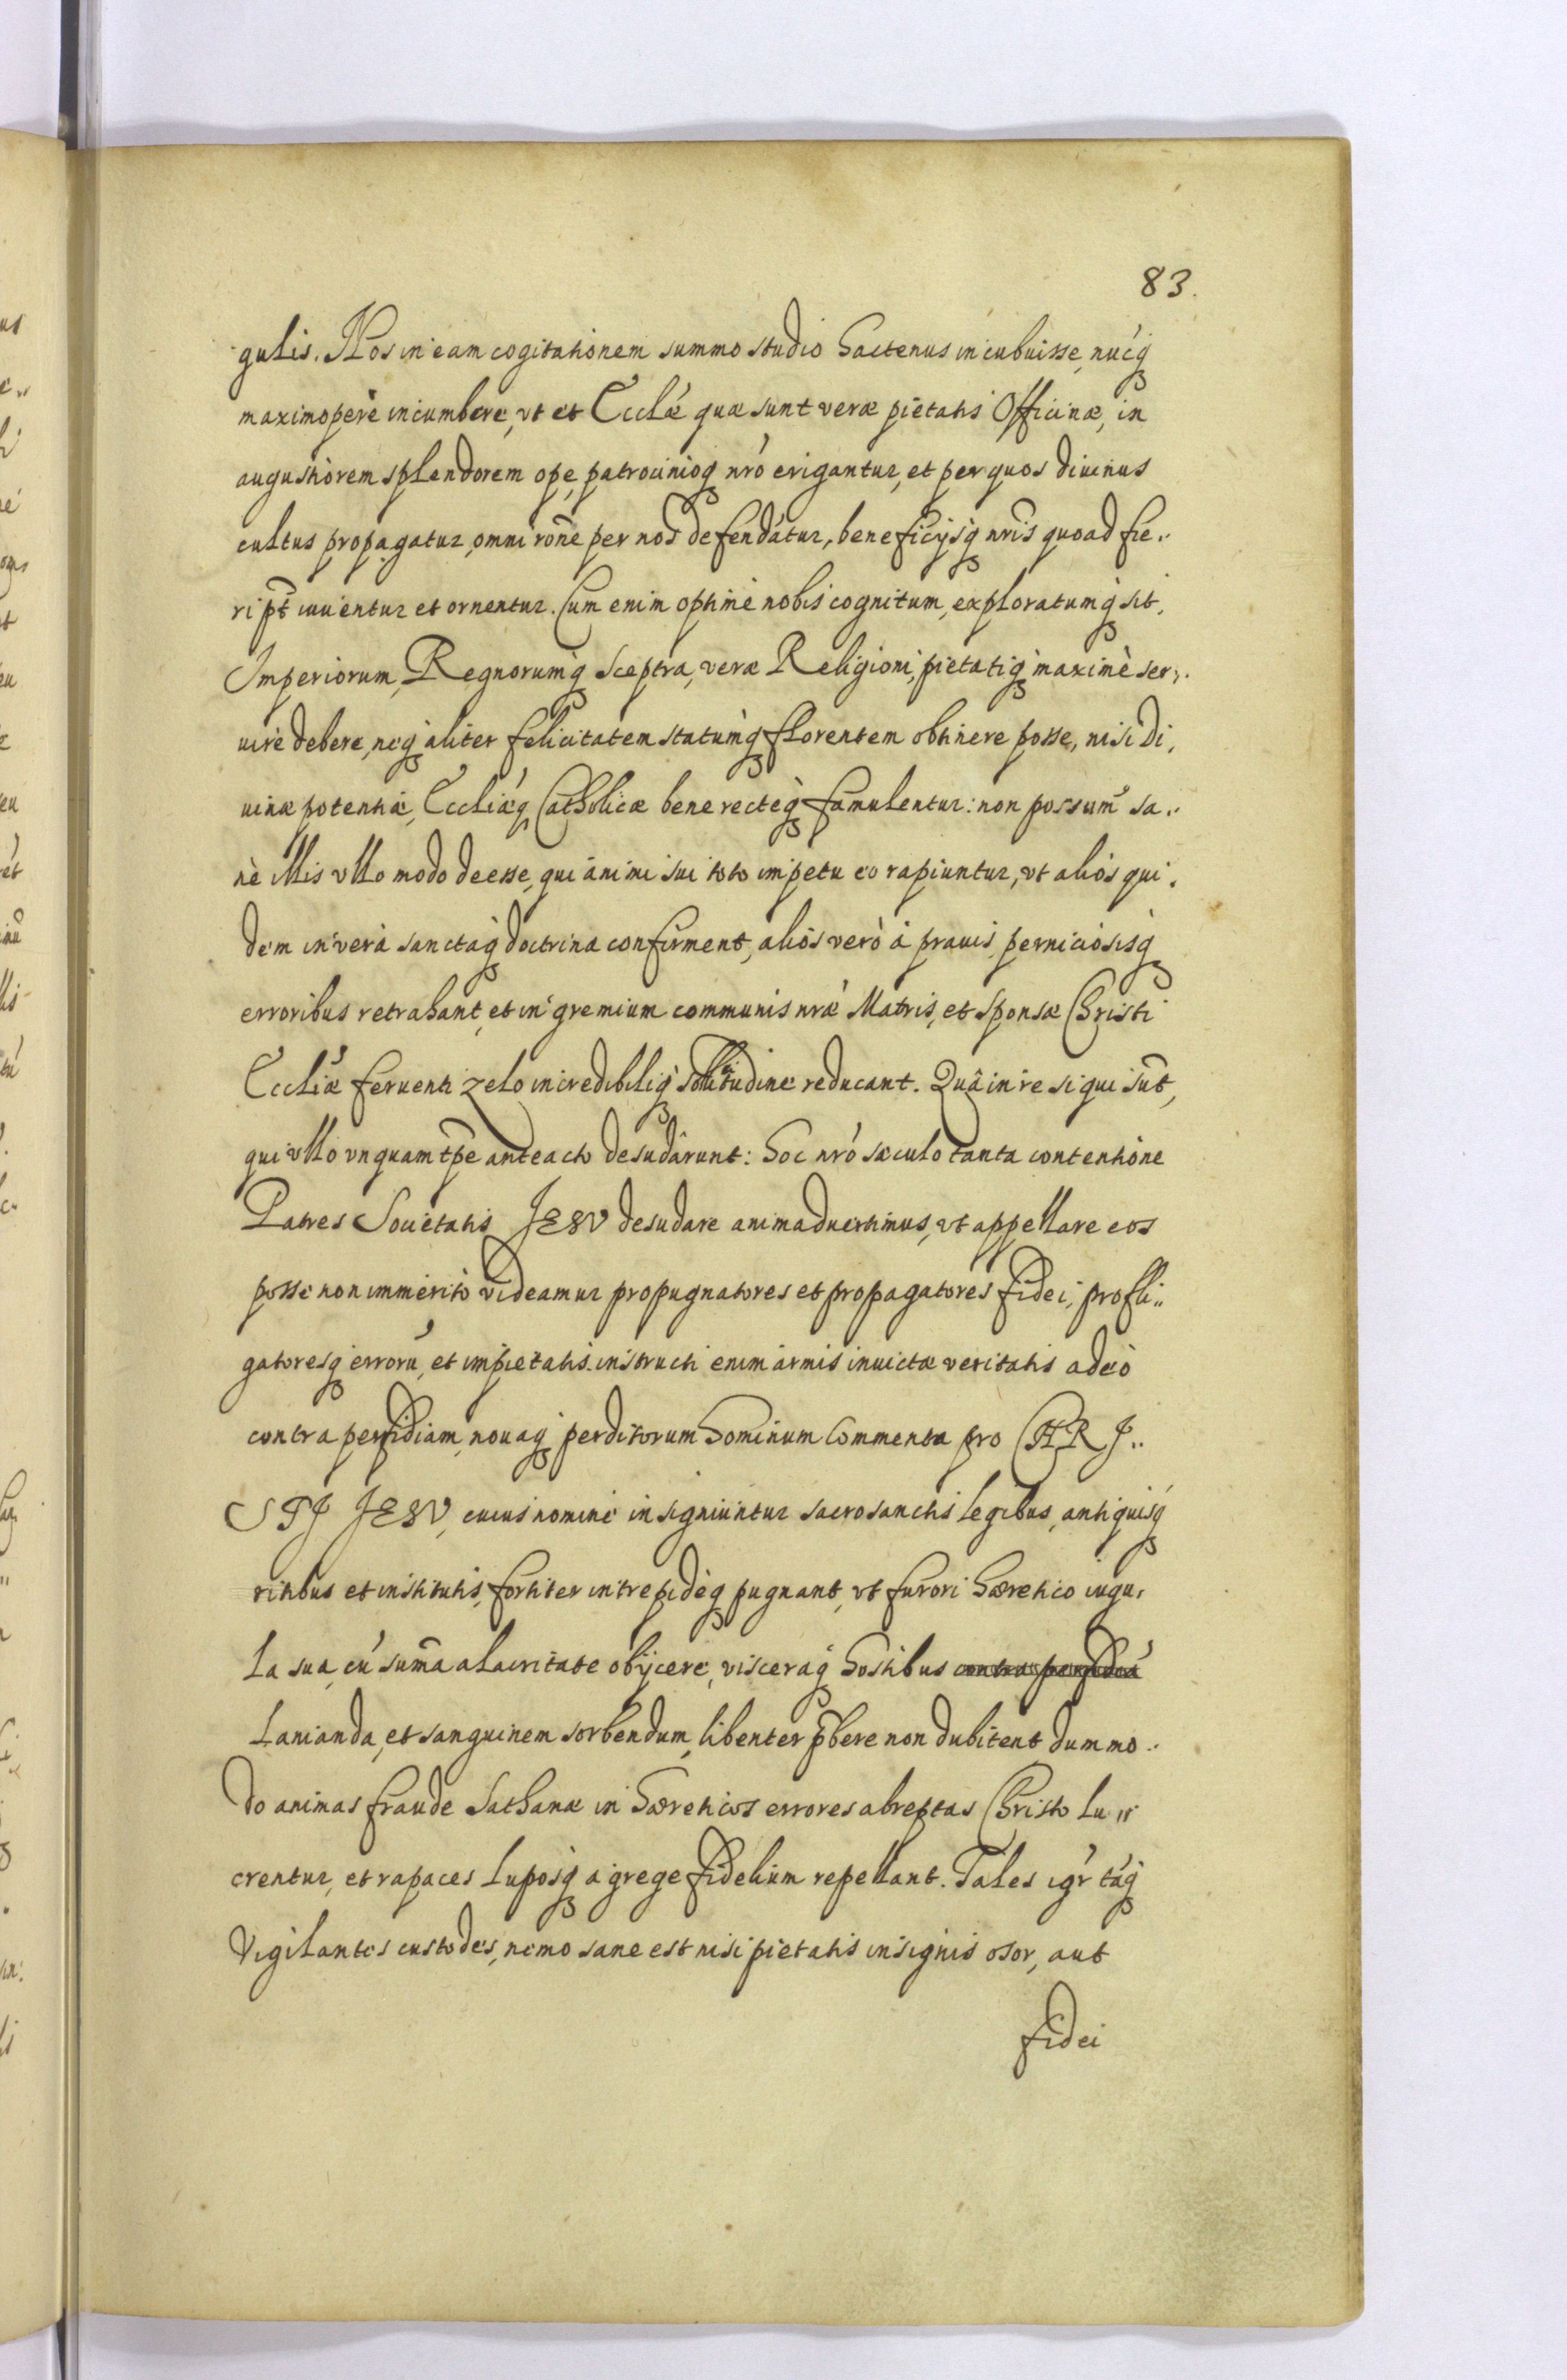 83.
gulis. Nos in eam cogitationem summo studio hactenus incubuisse, nu᷃cq̀
maximoperè incumbere, vt et Ecclæ̃ quæ sunt veræ pietatis Officinæ, in
augustiorem splendorem ope, patrocinioq̀ nr̃o erigantur, et per quos diuinus
cultus propagatur, omni rõne per nos defendãtur, beneficijsq̀ nr̃is quoad fie„
ri põt iuuentur et ornentur. Cum enim optimè nobis cognitum, exploratumq̀ sit,
Imperiorum, Regnorumq̀ Sceptra, veræ Religioni, pietatiq̀ maximè ser„
uire debere, neq̀ aliter felicitatem statumq̀ florentem obtinere posse, nisi Di„
uinæ potentiæ, Eccliæ̃q̀ Catholicæ bene recteq̀ famulentur: non possum᷒ sa„
nè illis vllo modo deesse, qui animi sui toto impetu eo rapiuntur, vt alios qui„
dem in verà sanctaq̀ doctrina confirment, alios verò à prauis perniciosisq̀
erroribus retrahant, et in gremium communis nr̃æ Matris, et Sponsæ Christi
Eccliæ̃ feruenti zelo incredibiliq̀ sollicitudine reducant. Quâ in re si qui sũt,
qui vllo vnquam tp̃e anteacto desudârunt: hoc nr̃o sæculo tanta contentione
Patres Societatis JESV desudare animaduertimus, vt appellare eos
posse non immeritò videamur propugnatores et propagatores fidei, profli„
gatoresq̀ errorũ, et impietatis. instructi enim armis inuictæ veritatis adeò
contra perfidiam, nouaq̀ perditorum hominum Commenta pro CHRJ„
STJ JESV, cuius nomine insigniuntur sacrosanctis legibus, antiquisq̀
ritibus et institutis, fortiter intrepidèq̀ pugnant, vt furori hæretico iugu„
la sua, cũ sum̃a alacritate obijcere, visceraq̀ hostibus contra perfidiã
lanianda, et sanguinem sorbendum, libenter p̃bere non dubitent, dummo„
do animas fraude Sathanæ in hæreticos errores abreptas Christo lu„
crentur, et rapaces luposq̀ a grege fidelium repellant. Tales igr̃ tãq̀
vigilantes custodes, nemo sane est nisi pietatis insignis osor, aut
fidei